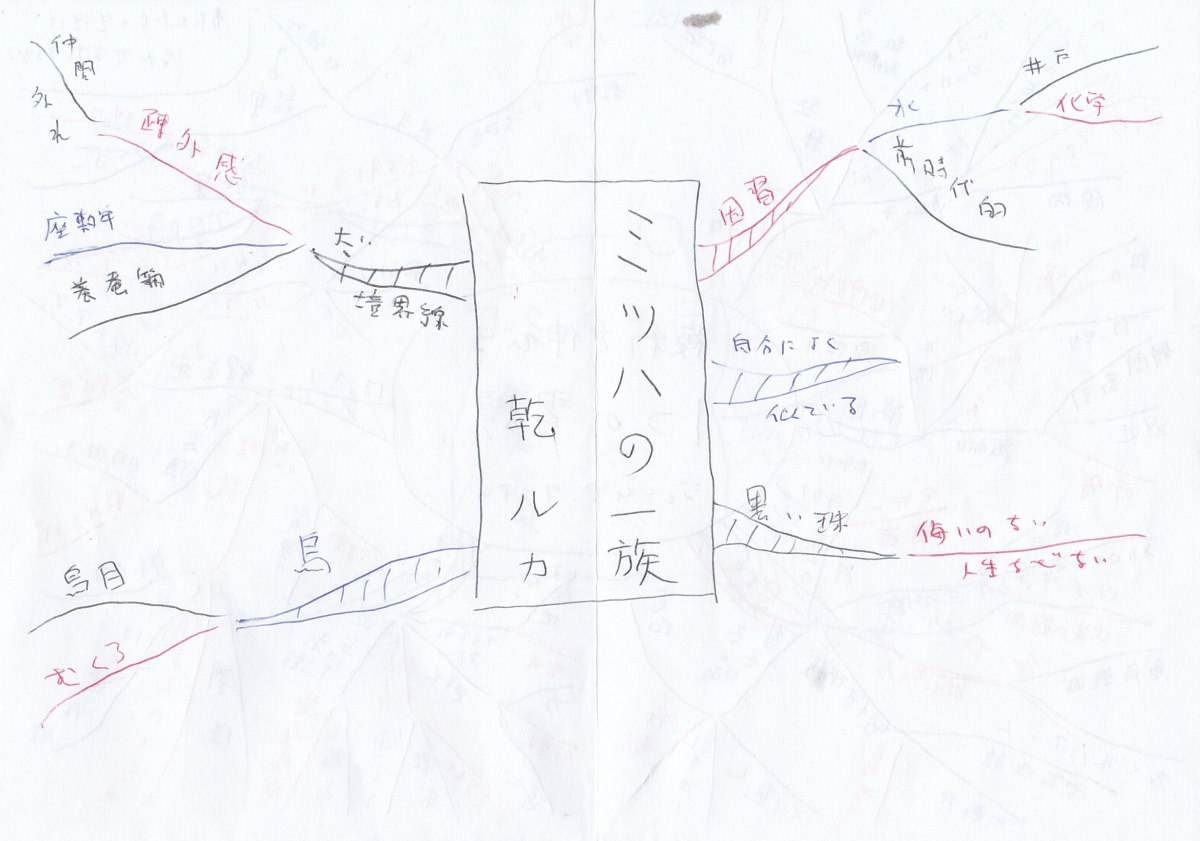 ミツハの一族
乾ルカ
因習
水
井戸
化学
前時代的
自分によく
似ている
黒い珠
悔いのない
人生などない
太い
境界線
疎外感
仲間外れ
座敷牢
巻竜
烏
烏目
むくろ